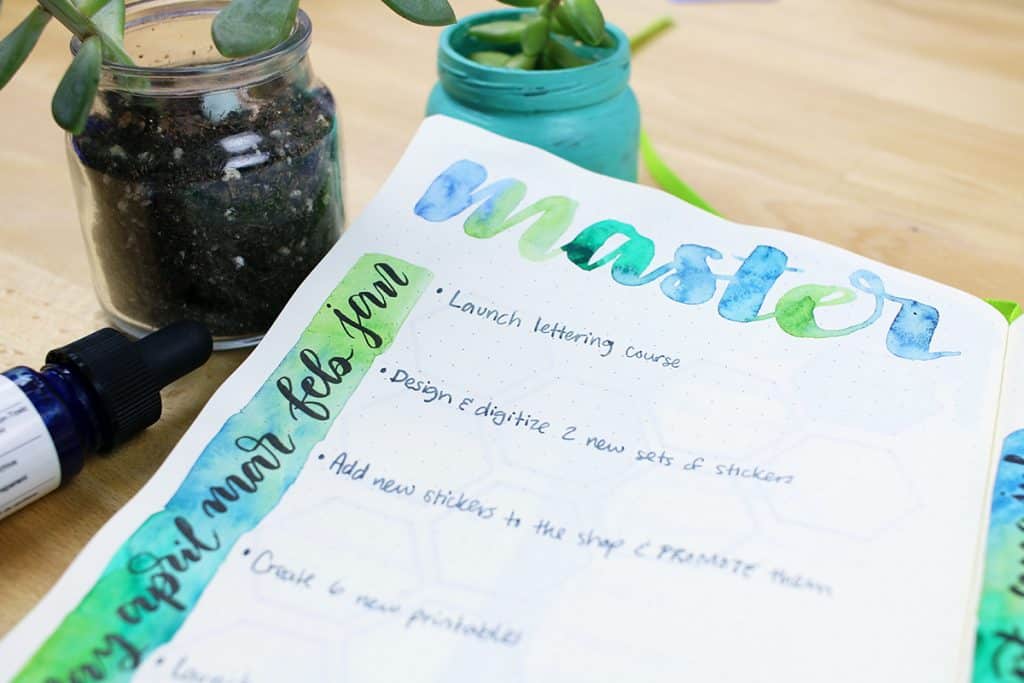 master
jan
• Launch lettering course
feb
• Design & digitize 2 new sets of stickers
mar
• Add new stickers to the shop & PROMOTE them
april
• Create 6 new printables
may
• Launch